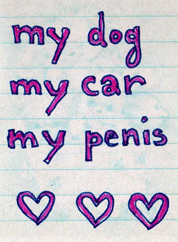 my dog
my car
my penis